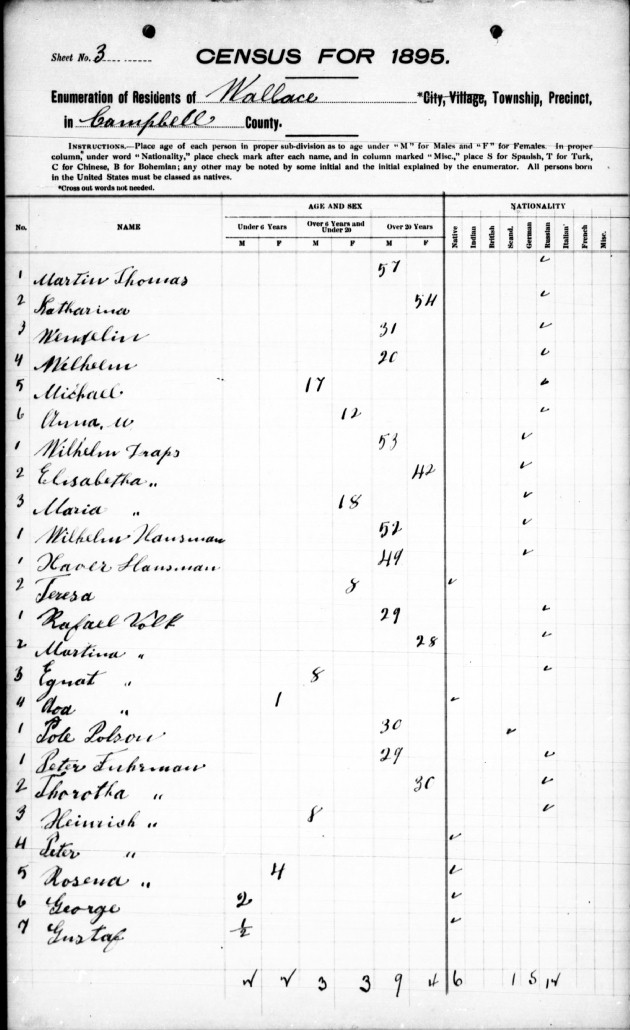 Sheet No. 3
CENSUS FOR 1895.
Enumeration of Residents of Wallace *City, Village, Township, Precinct,
in Campbell County.
INSTRUCTIONS.—Place age of each person in proper sub-division as to age under "M" for Males and "F" for Females. In proper
column, under word "Nationality," place check mark after each name, and in column marked "Misc.," place S for Spanish, T for Turk,
C for Chinese, B for Bohemian; any other may be noted by some initial and the initial explained by the enumerator. All persons born
in the United States must be classed as natives.
*Cross out words not needed.
No. NAME AGE AND SEX NATIONALITY
Under 6 Years Over 6 Years and Under 20 Over 20 Years
M F M F M F Native Indian British Scand. German Russian Italian French Misc.
1 Martin Thomas 57 ✓
2 Katharina 54 ✓
3 Wenselin 31 ✓
4 Wilhelm 20 ✓
5 Michael 17 ✓
6 Anna, w 12 ✓
1 Wilhelm Fraps 53 ✓
2 Elisabetha " 42 ✓
3 Maria " 18 ✓
1 Wilhelm Hausman 52 ✓
1 Xaver Hausman 49 ✓
2 Teresa 8 ✓
1 Rafael Volk 29 ✓
2 Martina " 28 ✓
3 Egnat " 8 ✓
4 " 1 ✓
1 Pole Polson 30 ✓
1 Peter Fuhrman 29 ✓
2 Thorotha " 30 ✓
3 Heinrich " 8 ✓
4 Peter " ✓
5 Rosena " 4 ✓
6 George 2 ✓
7 Gustaf ½ ✓
2 2 3 3 9 4 6 1 5 12